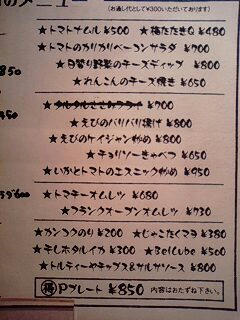 のメニュー
(お通し代として¥300いただいております)
★トマトナムル ¥500 ★梅たたきQ ¥480
★トマトのカリカリベーコンサラダ ¥700
★日替り野菜のチーズディップ ¥800
850
★れんこんのチーズ焼き ¥650
★タルタルささみフライ ¥700
★えびのバリバリ揚げ ¥800
★えびのケイジャン炒め ¥800
★チョリソーきゃべつ ¥650
★いかとトマトのエスニック炒め ¥950
★トマチーオムレツ ¥680
600
★フランクオープンオムレツ ¥730
★カンコクのり ¥200 ★じゃこたくマヨ ¥380
★干しホタルイカ ¥300 ★BelCube ¥500
★トルティーヤチップス&サルサソース ¥800
得Pプレート ¥850 内容はおたずね下さい。